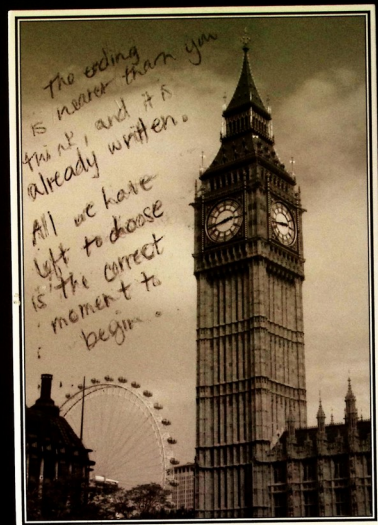 The ending
is nearer than you
think, and it is
already written.
All we have
left to choose
is the correct
moment to
begin.